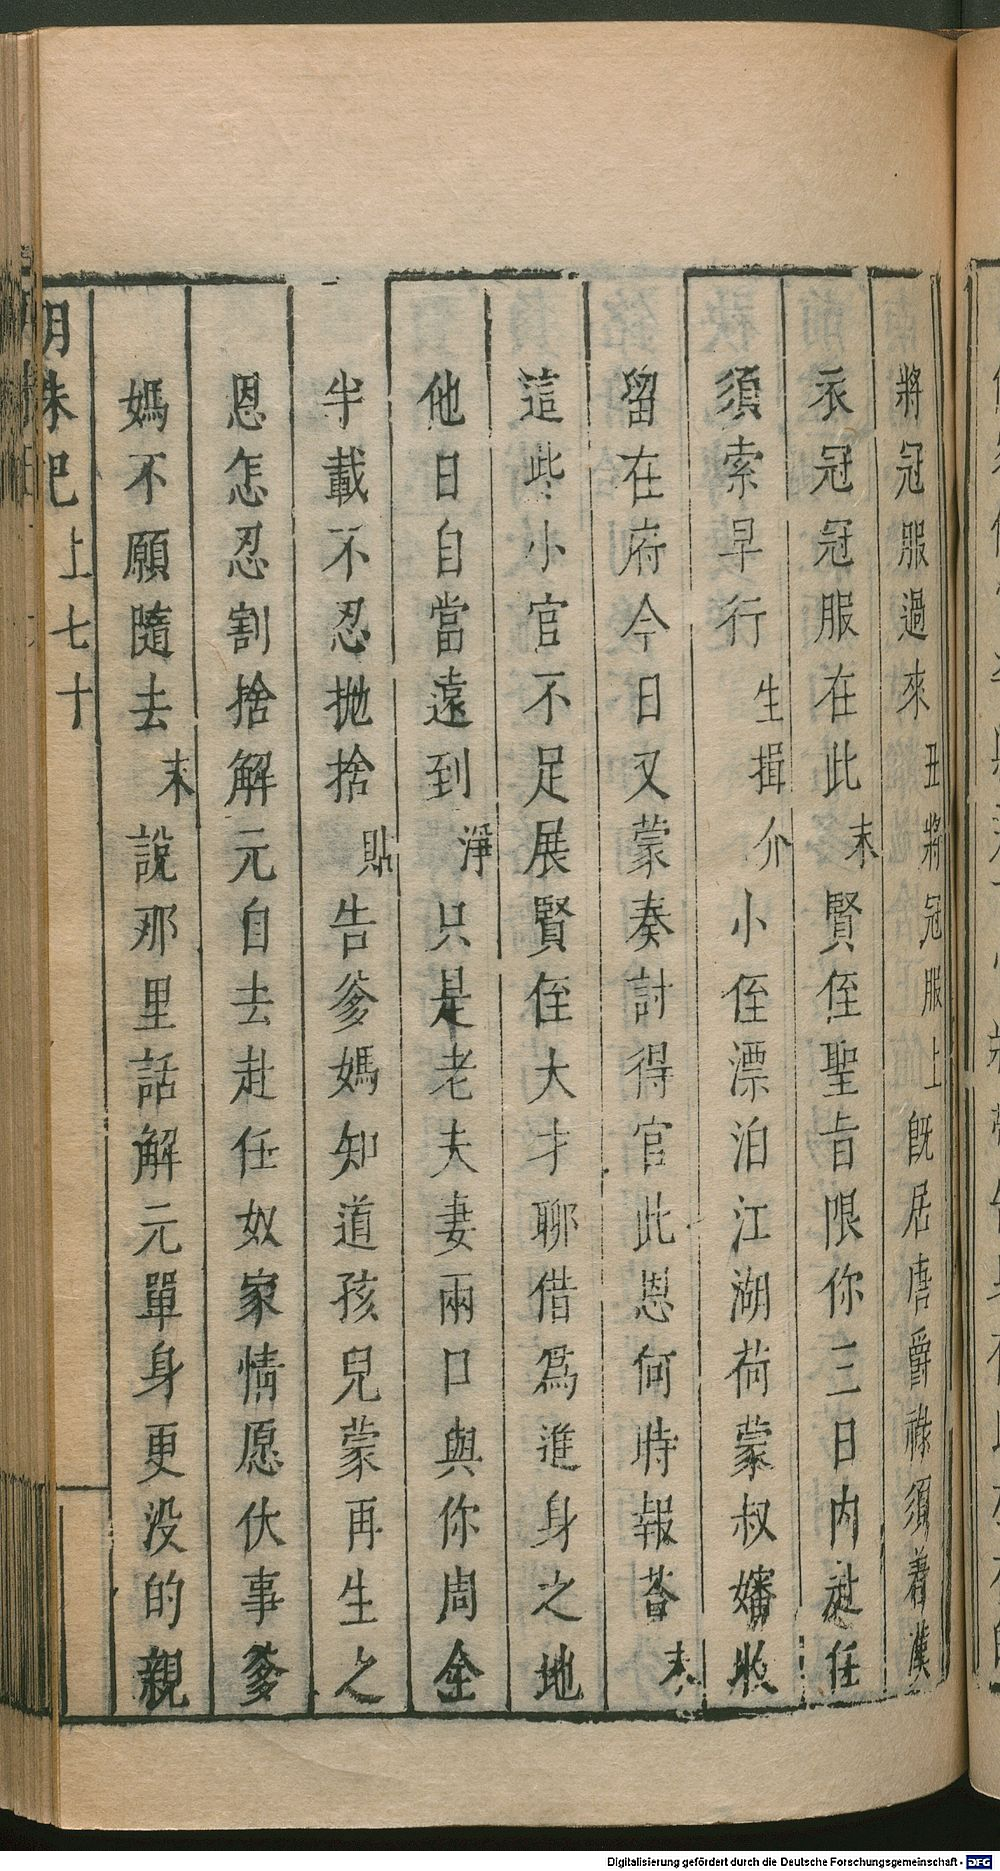 將冠服過來丑將冠服上旣居唐爵祿須着漢
衣冠冠服在此末賢侄聖旨限你三日内赴任
須索早行生揖介小侄漂泊江湖荷蒙叔嬸收
留在府今日又蒙奏討得官此恩何時報荅末
這些小官不足展賢侄大才聊借爲進身之地
他日自當遠到淨只是老夫妻兩口與你周全
半載不忍抛捨貼告爹媽知道孩兒蒙再生之
恩怎忍割捨解元自去赴任奴家情愿伏事爹
媽不願隨去末說那里話解元單身更没的親
明珠記上七十
Digitalisierung gefördert durch die Deutsche Forschungsgemeinschaft - DFG